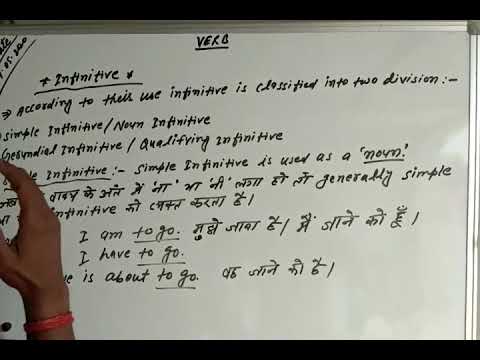 VERB
* Infinitive *
⇒ According to their use infinitive is classified into two division:-
Simple Infinitive / Noun Infinitive
Gerundial Infinitive / Qualifying Infinitive
Infinitive :- Simple Infinitive is used as a 'noun'.
वाक्य के अंत में 'ना' या 'नी' लगा हो तो generally simple
infinitive को व्यक्त करता है।
I am to go. मुझे जाना है। मैं जाने को हूँ।
I have to go.
is about to go. वह जाने को है।